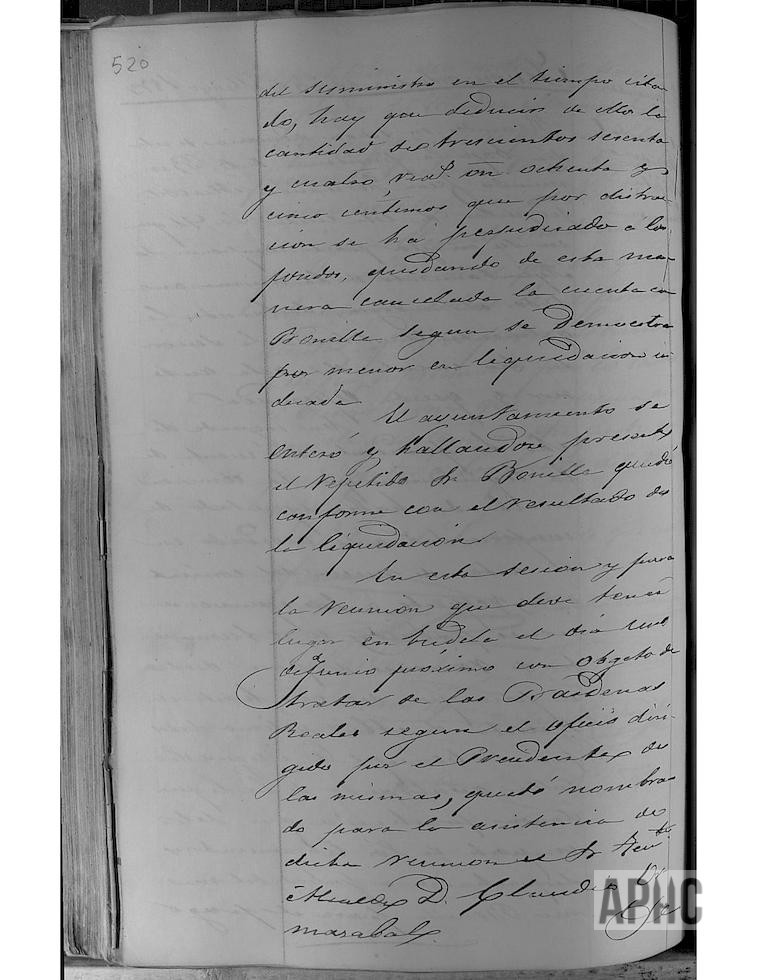 520
del suministro en el tiempo cita
do, hay que deducir de ellos la
cantidad de trescientos sesenta
y cuatro, real. vn. ochenta y
cinco centimos que por distra
cion se ha perjudicado á los
fondos, quedando de esta ma
nera cancelada la cuenta con
Bonilla segun se demuestra
por menor en liquidacion in
dicada
El ayuntamiento se
enteró y hallandose presente
el repetido Sr Bonilla quedó
conforme con el resultado de
la liquidación.
En esta sesion y para
la reunion que deve tener
lugar en tudela el dia uno
de Junio próximo con objeto de
tratar de las Bardenas
Reales segun el oficio diri
gido por el Presidente de
las mismas, quedó nombra
do para la asistencia de
dicha reunion el Sr Tente
Alcalde D. Claudio
marabal.
APHC